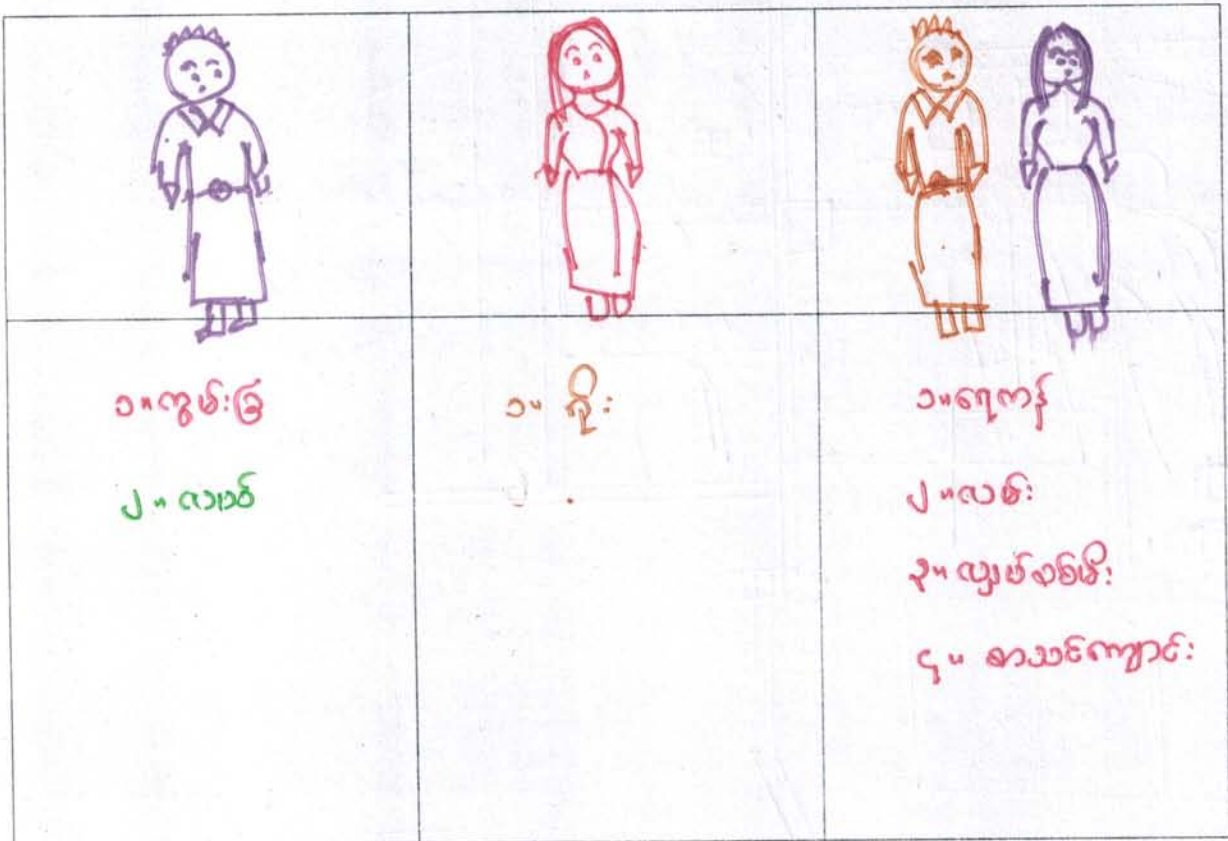 ၁။ကွမ်းခြံ
၂။
၁။ ရိုး
၂ .
၁။ရေကန်
၂။လမ်း
၃။လျှပ်စစ်မီး
၄။ စာသင်ကျောင်း